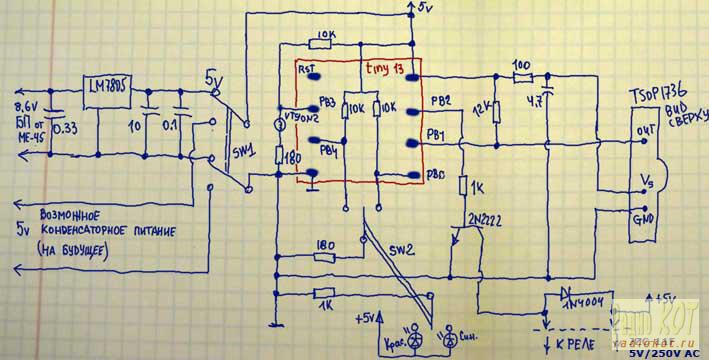 5v
10K
tiny 13
RST
LM7805
5v
100
TSOP1736
ВИД
СВЕРХУ
8,6V
БП от
МЕ-45
0.33
10
0.1
PB3
10K
10K
PB2
12K
4.7
OUT
PB1
SW1
180
PB4
PB0
1K
Vs
GND
2N2222
ВОЗМОЖНОЕ
5v КОНДЕНСАТОРНОЕ ПИТАНИЕ
(НА БУДУЩЕЕ)
180
SW2
1K
1N4004
+5v
+5v
Крас.
Син.
К РЕЛЕ
РадиоКОТ
radiokot.ru
5V/250V AC